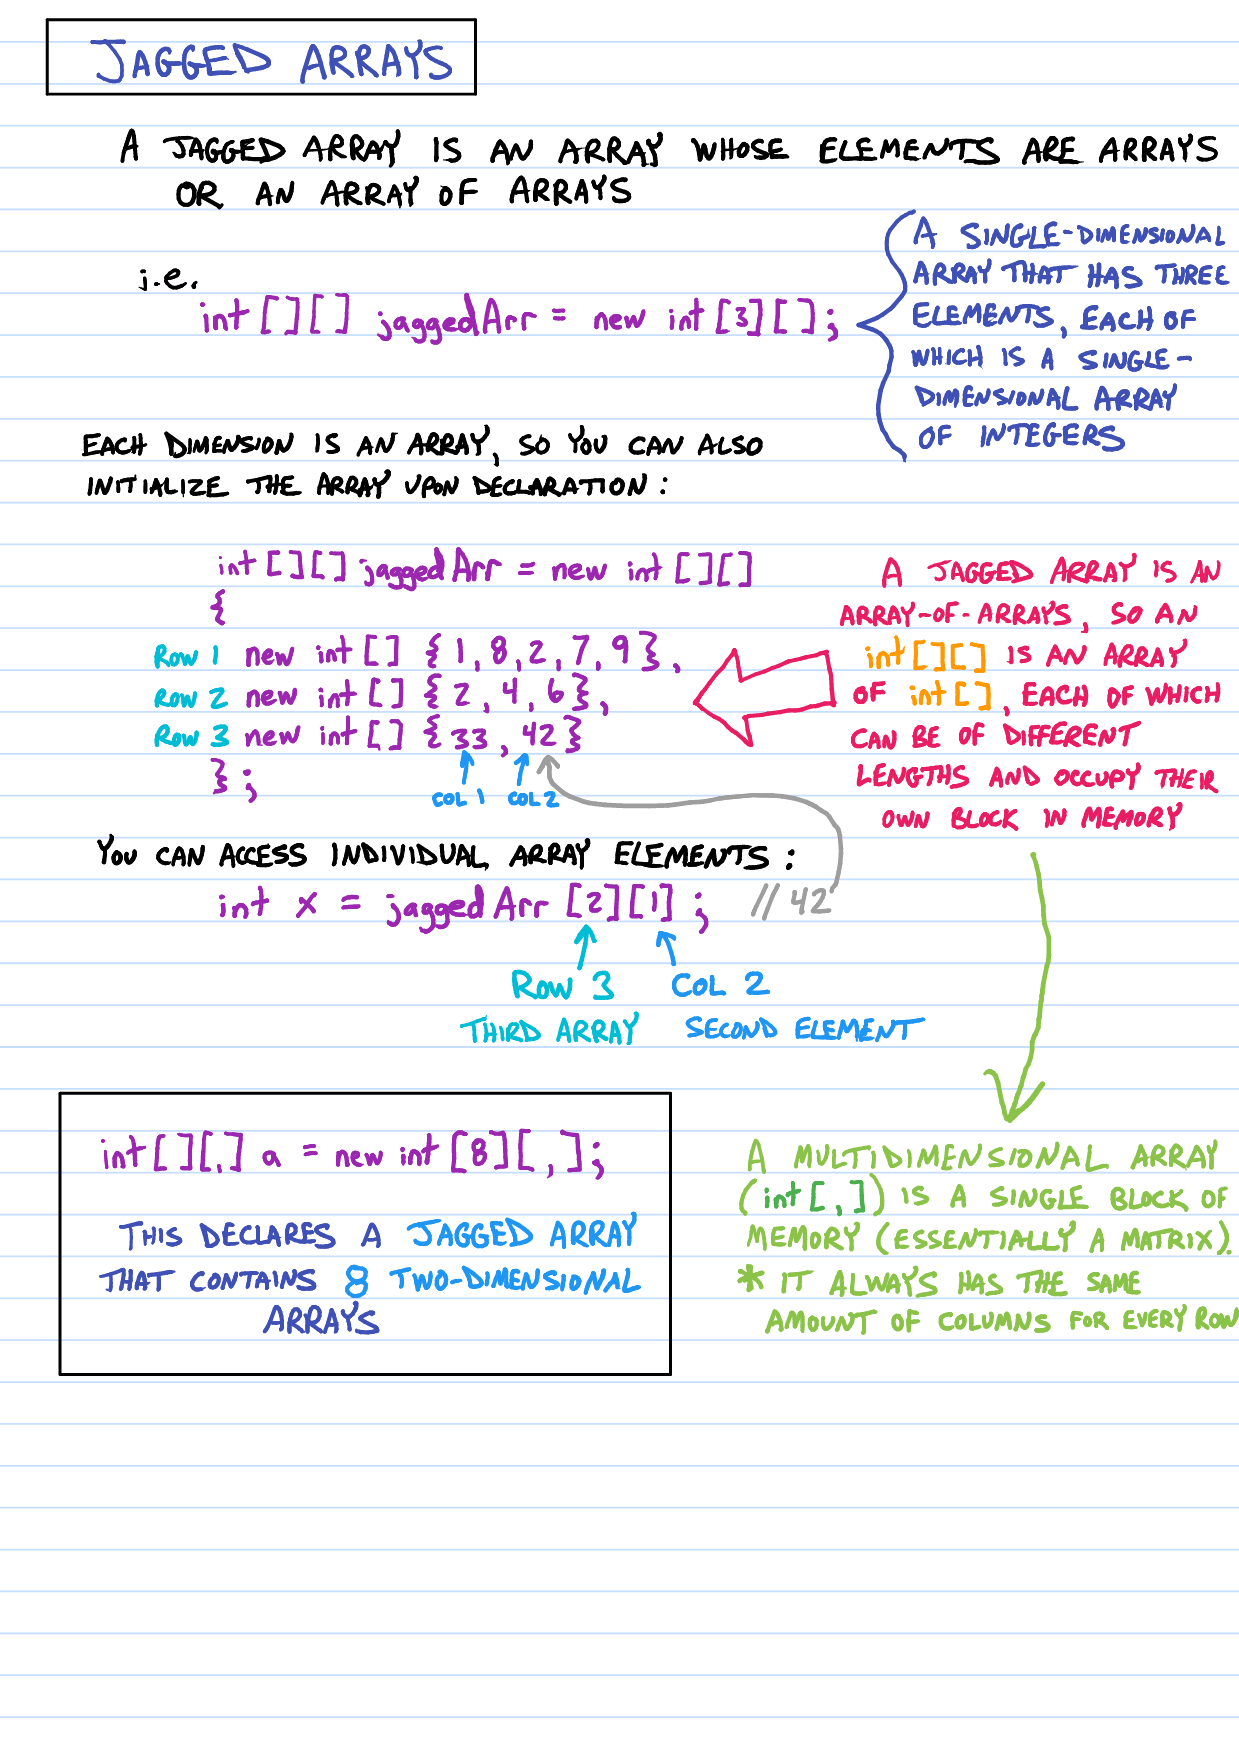 JAGGED ARRAYS
A JAGGED ARRAY IS AN ARRAY WHOSE ELEMENTS ARE ARRAYS
OR AN ARRAY OF ARRAYS
i.e.
int[][] jaggedArr = new int[3][];
A SINGLE-DIMENSIONAL
ARRAY THAT HAS THREE
ELEMENTS, EACH OF
WHICH IS A SINGLE-
DIMENSIONAL ARRAY
OF INTEGERS
EACH DIMENSION IS AN ARRAY, SO YOU CAN ALSO
INITIALIZE THE ARRAY UPON DECLARATION:
int[][] jaggedArr = new int[][]
{
Row 1 new int[] {1, 8, 2, 7, 9},
Row 2 new int[] {2, 4, 6},
Row 3 new int[] {33, 42}
};
COL 1 COL 2
A JAGGED ARRAY IS AN
ARRAY-OF-ARRAYS, SO AN
int[][] IS AN ARRAY
OF int[], EACH OF WHICH
CAN BE OF DIFFERENT
LENGTHS AND OCCUPY THEIR
OWN BLOCK IN MEMORY
YOU CAN ACCESS INDIVIDUAL ARRAY ELEMENTS:
int x = jaggedArr [2][1]; // 42
Row 3 COL 2
THIRD ARRAY SECOND ELEMENT
int[][,] a = new int[8][,];
THIS DECLARES A JAGGED ARRAY
THAT CONTAINS 8 TWO-DIMENSIONAL
ARRAYS
A MULTIDIMENSIONAL ARRAY
(int[,]) IS A SINGLE BLOCK OF
MEMORY (ESSENTIALLY A MATRIX).
* IT ALWAYS HAS THE SAME
AMOUNT OF COLUMNS FOR EVERY ROW